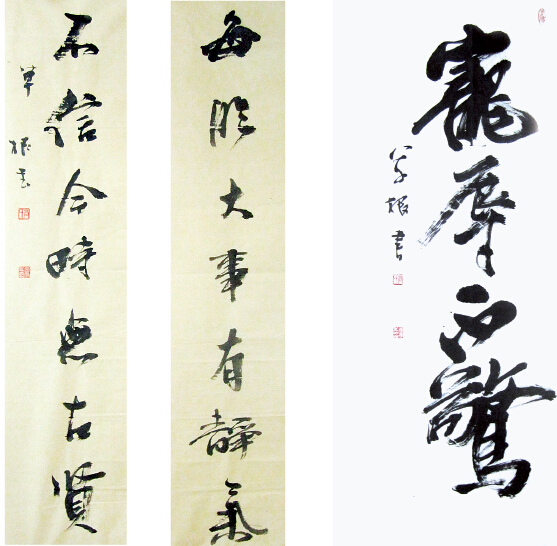 寵辱不驚
草根書
每臨大事有靜氣
不信今時無古賢
草根書